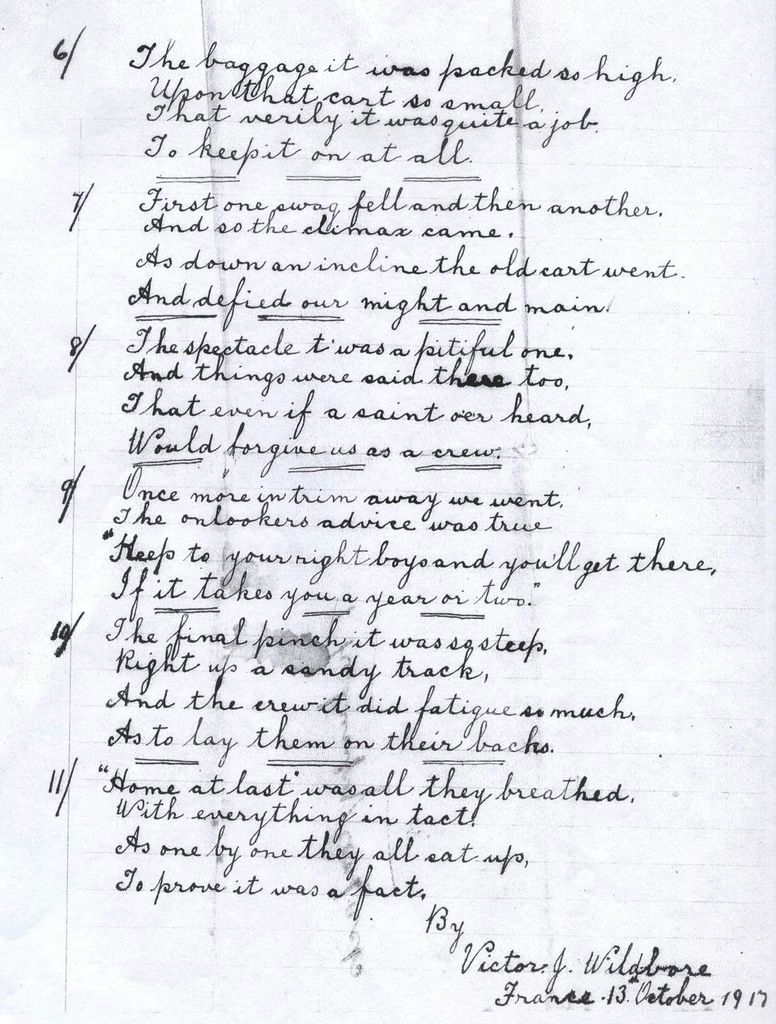 6/ The baggage it was packed so high.
Upon that cart so small,
That verily it was quite a job.
To keep it on at all.
7/ First one swag fell and then another.
And so the climax came.
As down an incline the old cart went.
And defied our might and main.
8/ The spectacle t'was a pitiful one,
And things were said there too,
That even if a saint o'er heard,
Would forgive us as a crew.
9/ Once more in trim away we went.
The onlookers advice was true
"Keep to your right boys and you'll get there,
If it takes you a year or two."
10/ The final pinch it was so steep,
Right up a sandy track,
And the crew it did fatigue so much,
As to lay them on their backs.
11/ "Home at last" was all they breathed.
With everything in tact.
As one by one they all sat up,
To prove it was a fact.
By
Victor. J. Wildbore
France. 13th October 1917